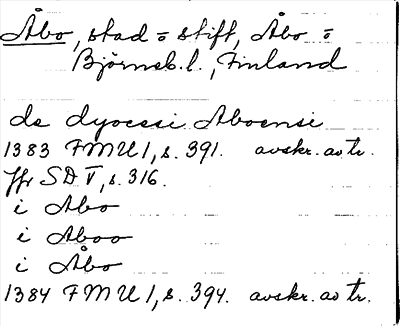 Åbo, stad o stift, Åbo o
Björneb. l., Finland
de dyocesi Aboensi
1383 FMU 1, s. 391. avskr. av tr.
Jfr SD V, s. 316.
i Abo
i Aboo
i Åbo
1384 FMU 1, s. 394. avskr. av tr.